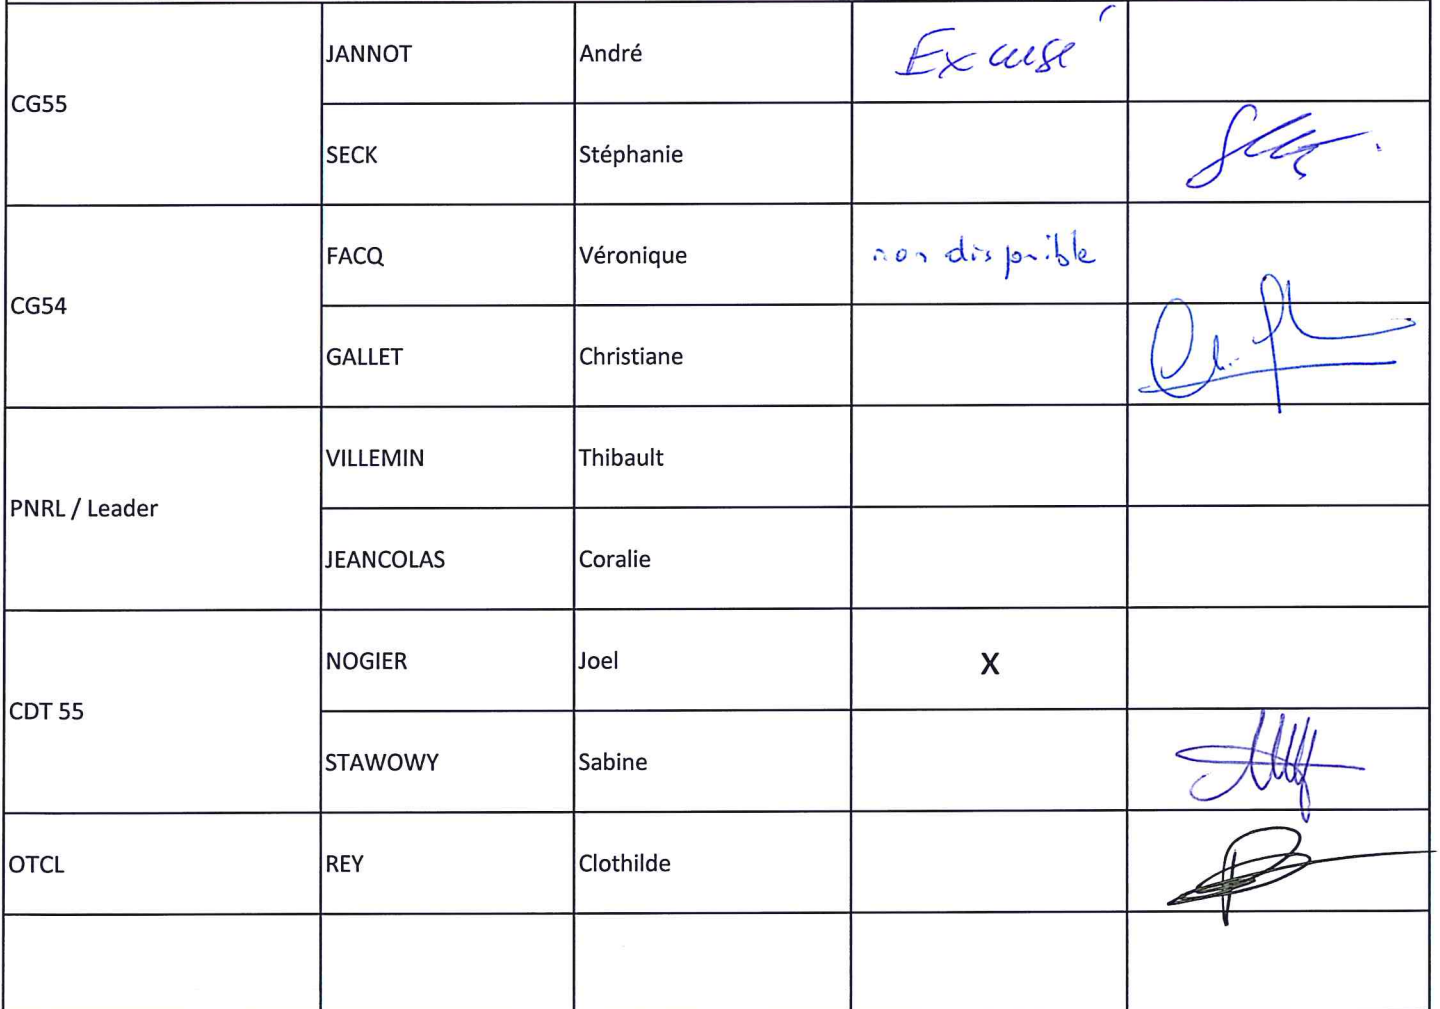 CG55
JANNOT André Excusé
SECK Stéphanie
CG54
FACQ Véronique non disponible
GALLET Christiane
PNRL / Leader
VILLEMIN Thibault
JEANCOLAS Coralie
CDT 55
NOGIER Joel X
STAWOWY Sabine
OTCL REY Clothilde